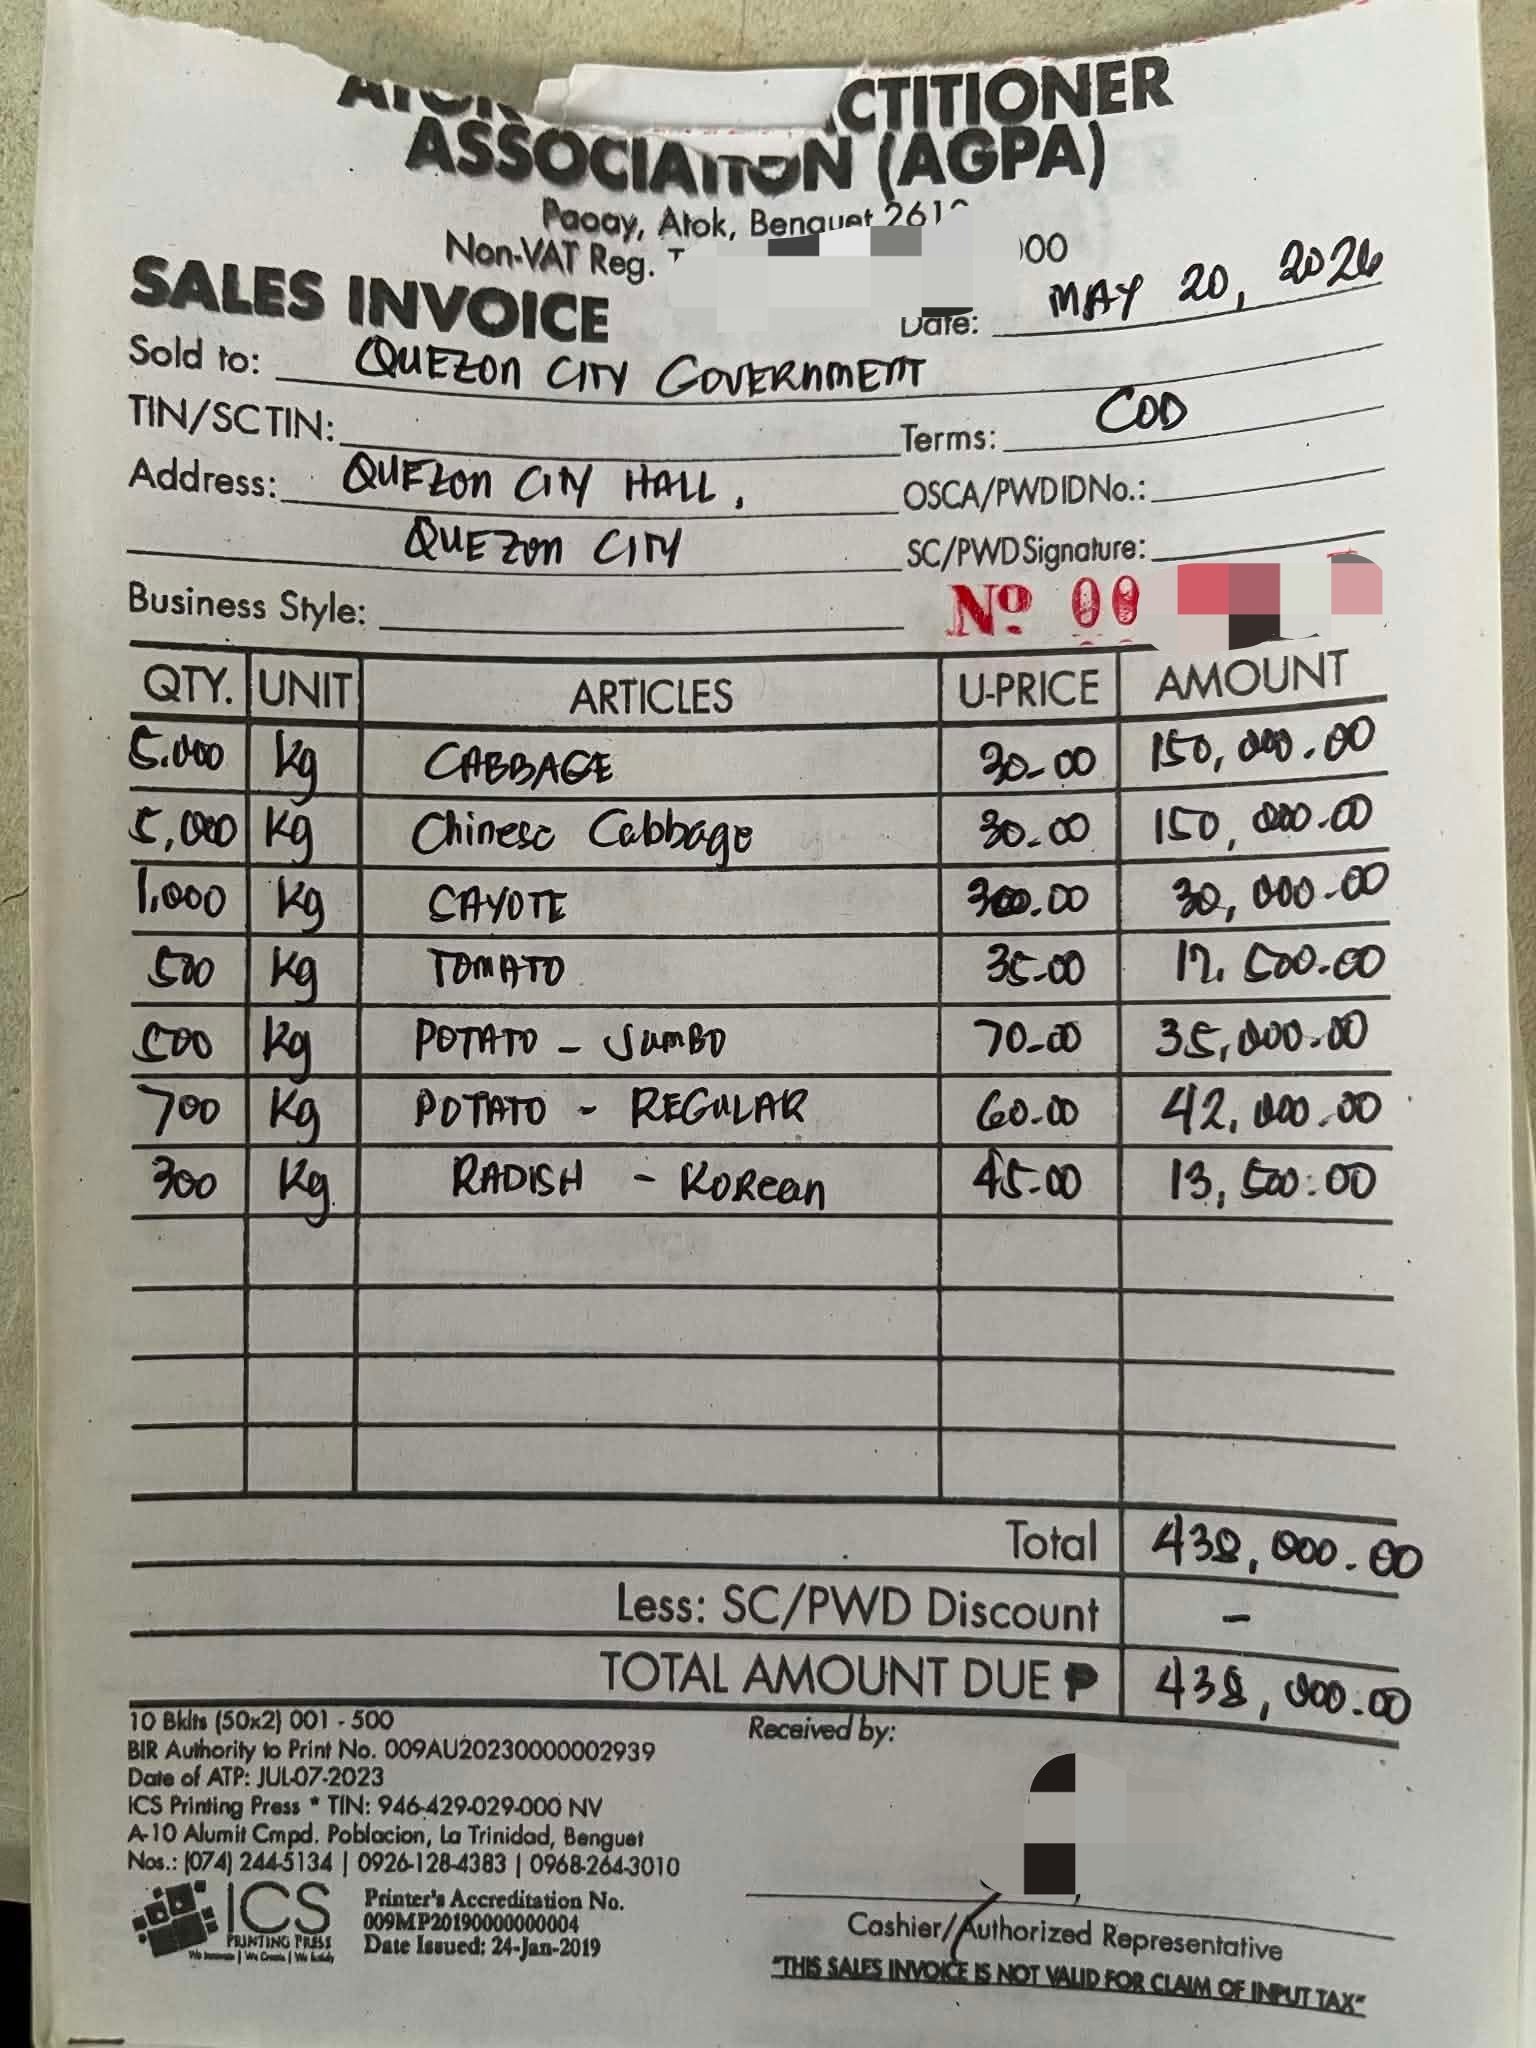 CTITIONER
ASSOCIATION (AGPA)
Paoay, Atok, Benguet
Non-VAT Reg. 000
SALES INVOICE
Date: MAY 20, 2026
Sold to: QUEZON CITY GOVERNMENT
TIN/SC TIN:
Terms: COD
Address: QUEZON CITY HALL,
OSCA/PWD ID No.:
QUEZON CITY
SC/PWD Signature:
Business Style:
Nº 00
QTY. UNIT ARTICLES U-PRICE AMOUNT
5.000 Kg CABBAGE 30-00 150,000.00
5,000 Kg Chinese Cabbage 30.00 150,000.00
1,000 Kg SAYOTE 30,000-00
500 Kg TOMATO 35-00 17,500-00
500 Kg POTATO - JUMBO 70-00 35,000.00
700 Kg POTATO - REGULAR 60-00 42,000.00
300 Kg. RADISH - KOREAN 45-00 13,500.00
Total 438,000.00
Less: SC/PWD Discount -
TOTAL AMOUNT DUE ₱ 438,000.00
10 Bklts (50x2) 001 - 500
BIR Authority to Print No. 009AU20230000002939
Date of ATP: JUL-07-2023
ICS Printing Press * TIN: 946-429-029-000 NV
A-10 Alumit Cmpd. Poblacion, La Trinidad, Benguet
Nos.: (074) 244-5134 | 0926-128-4383 | 0968-264-3010
Received by:
ICS
PRINTING PRESS
Printer's Accreditation No.
009MP20190000000004
Date Issued: 24-Jan-2019
Cashier/Authorized Representative
"THIS SALES INVOICE IS NOT VALID FOR CLAIM OF INPUT TAX"